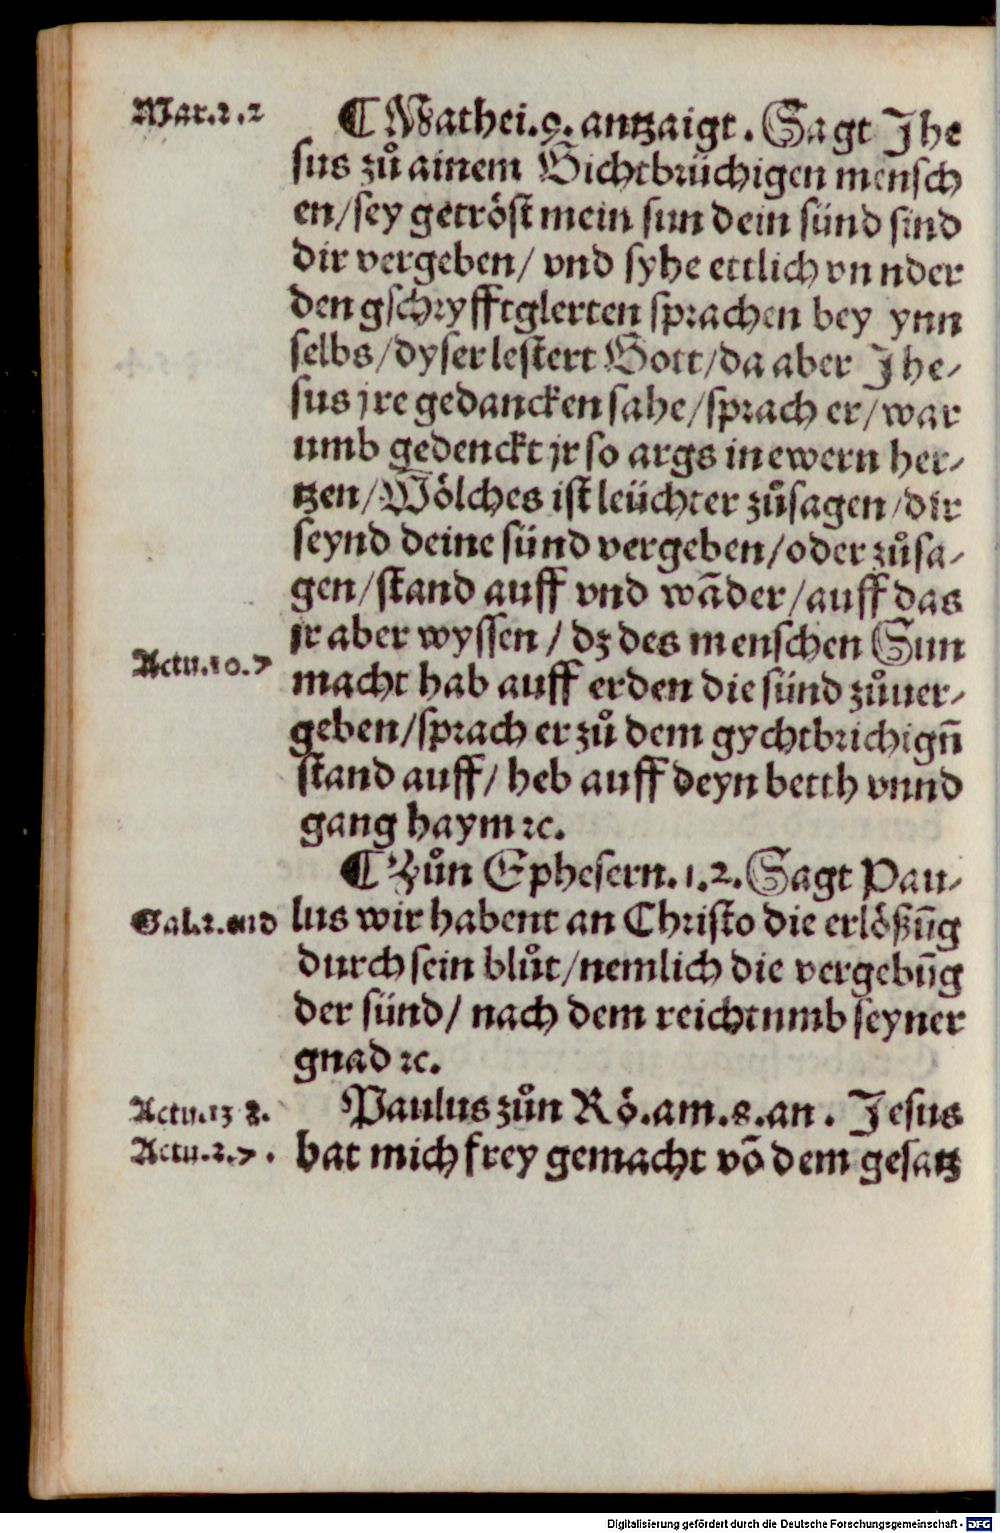 Mar.2.2
¶ Mathei.9. antzaigt. Sagt Jhe
sus zů ainem Gichtbrüchigen mensch
en/sey getröst mein sun dein sünd sind
dir vergeben/ vnd syhe ettlich vnnder
den gschryfftglerten sprachen bey ynn
selbs/dyser lestert Gott/da aber Jhe-
sus jre gedancken sahe/sprach er/war
umb gedenckt jr so args in ewern her-
tzen/Wölches ist leüchter zůsagen/dir
seynd deine sünd vergeben/oder zůsa-
gen/stand auff vnd wāder/auff das
jr aber wyssen / dz des menschen Sun
Actu.10.7
macht hab auff erden die sünd zůuer-
geben/sprach er zů dem gychtbrichign̄
stand auff/ heb auff deyn betth vnnd
gang haym ꝛc.
¶ Zůn Ephesern.1.2. Sagt Pau-
Gal.2.
lus wir habent an Christo die erlößūg
durch sein blůt/nemlich die vergebūg
der sünd/ nach dem reichtumb seyner
gnad ꝛc.
Actu.13 8.
Paulus zůn Rö.am.8.an. Jesus
Actu.2.7.
hat mich frey gemacht vō dem gesatz
Digitalisierung gefördert durch die Deutsche Forschungsgemeinschaft - DFG